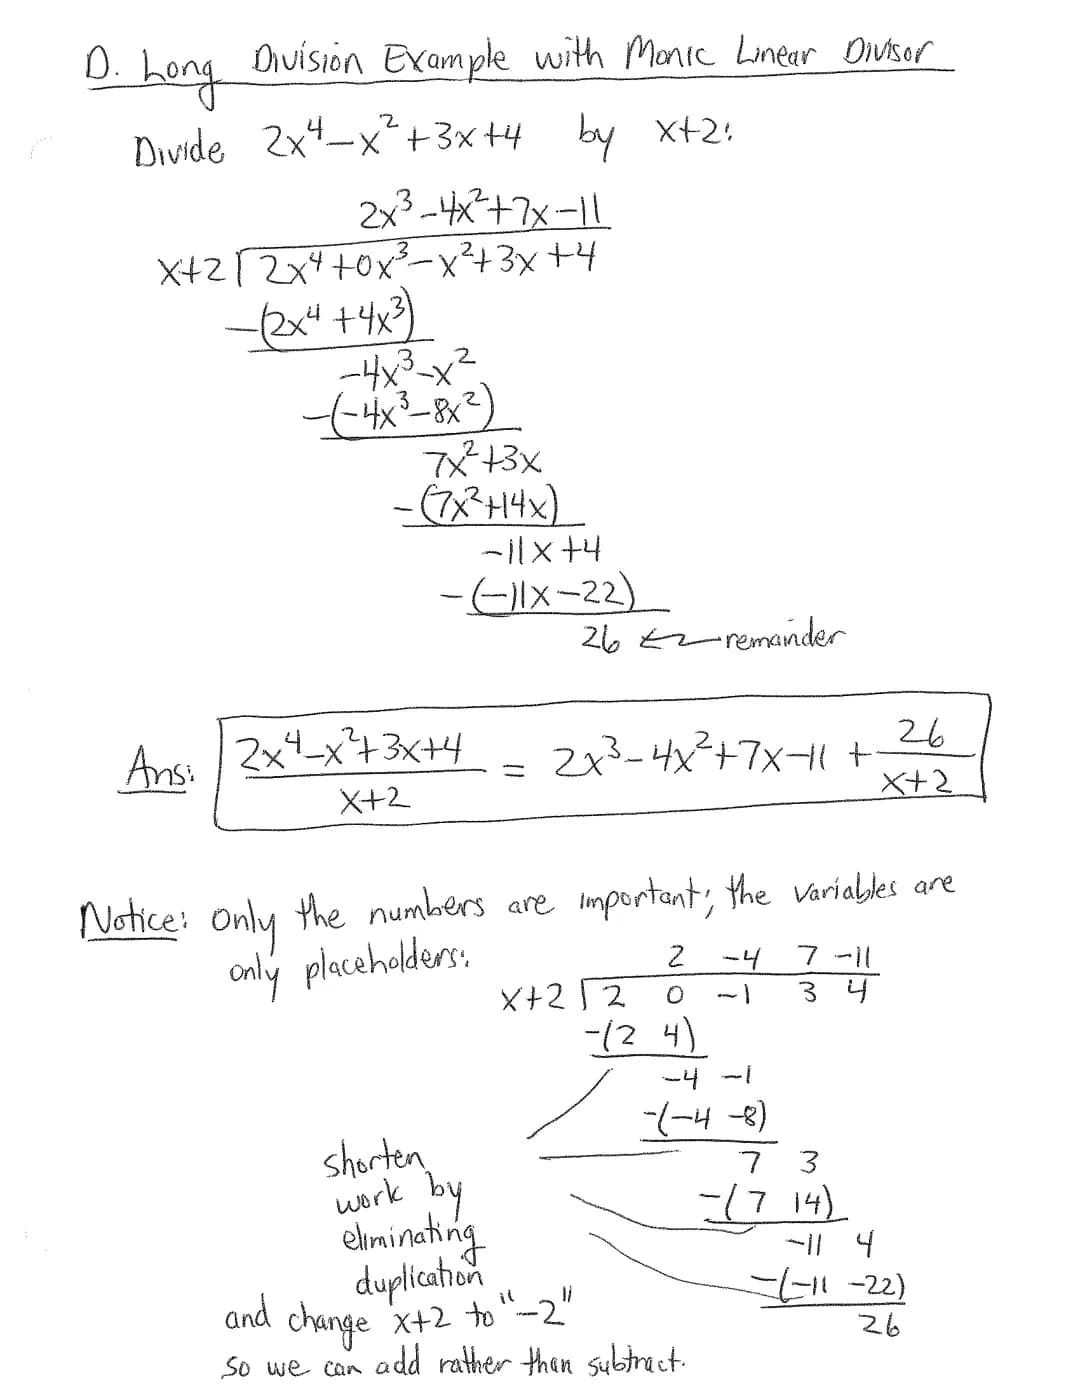 D. Long Division Example with Monic Linear Divisor
Divide 2x⁴-x²+3x+4 by x+2:
2x³-4x²+7x-11
x+2 2x⁴+0x³-x²+3x+4
-(2x⁴+4x³)
-4x³-x²
-(-4x³-8x²)
7x²+3x
-(7x²+14x)
-11x+4
-(-11x-22)
26 ← remainder
Ans: (2x⁴-x²+3x+4)/(x+2) = 2x³-4x²+7x-11 + 26/(x+2)
Notice: only the numbers are important; the variables are
only placeholders:
2 -4 7 -11
x+2 2 0 -1 3 4
-(2 4)
-4 -1
-(-4 -8)
7 3
-(7 14)
-11 4
-(-11 -22)
26
shorten
work by
eliminating
duplication
and change x+2 to "-2"
so we can add rather than subtract.